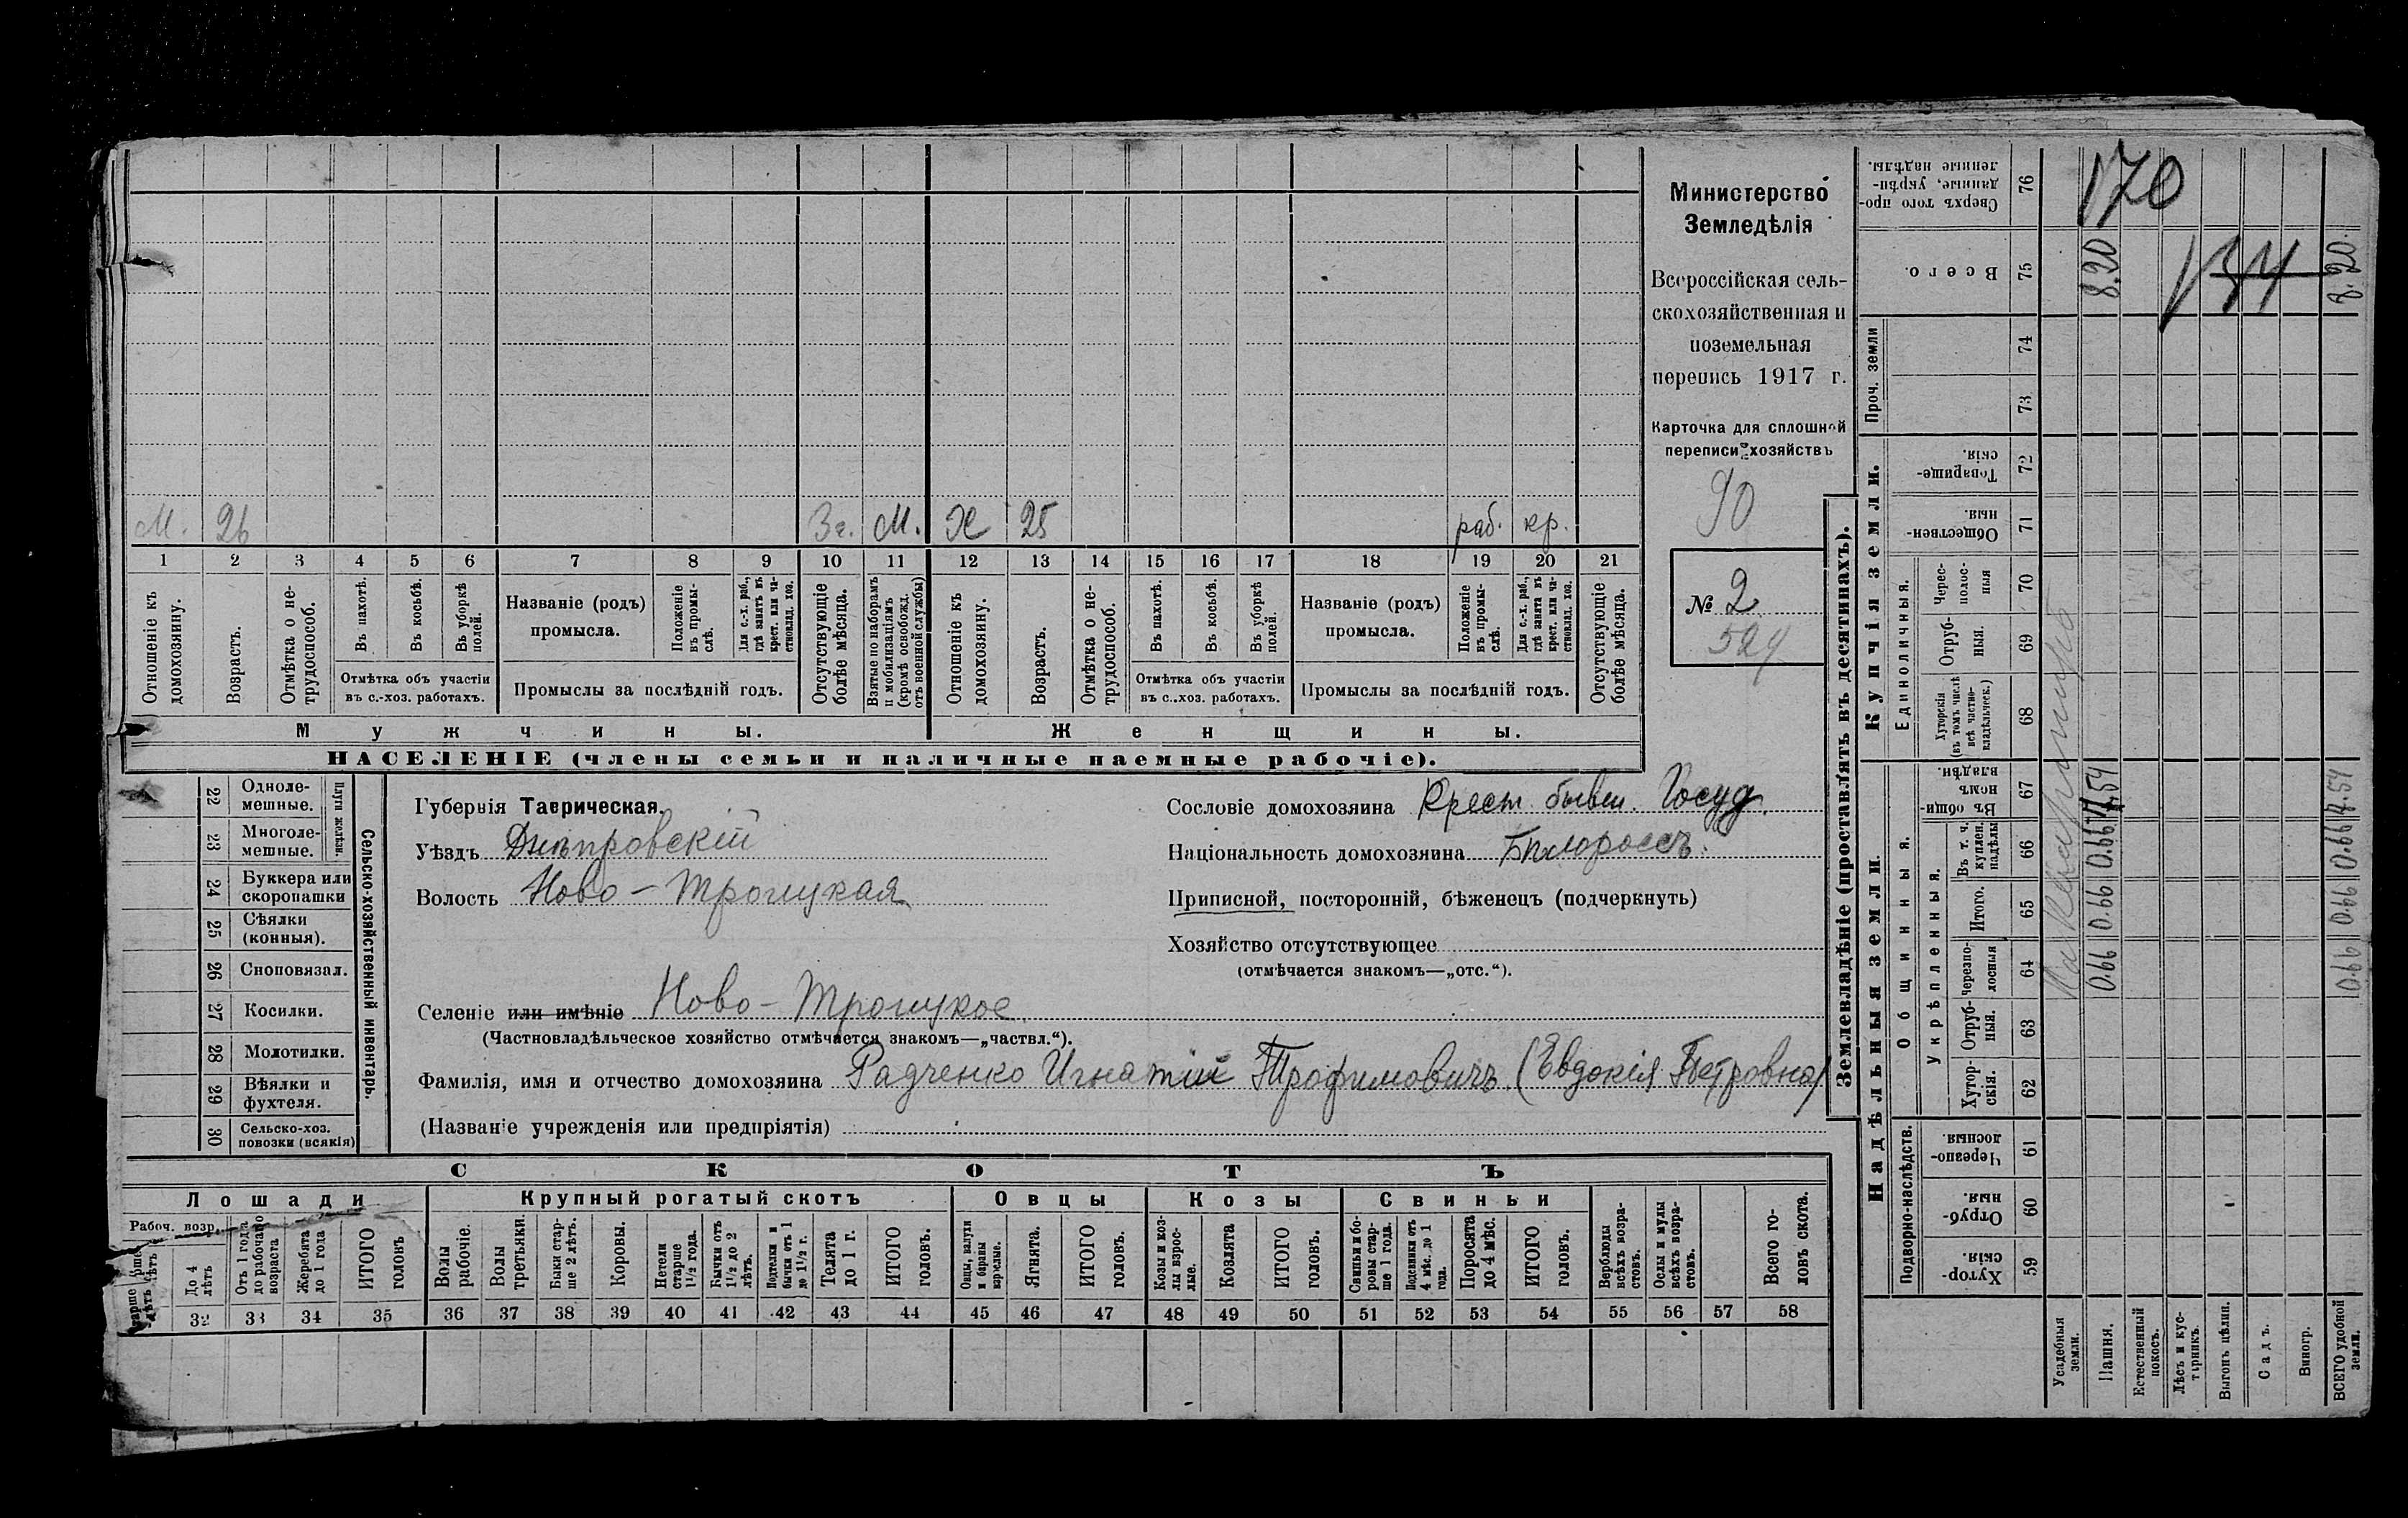 Министерство
Земледѣлія
Всероссійская сель-
скохозяйственная и
поземельная
перепись 1917 г.
Карточка для сплошной
переписи хозяйствъ
90
№ 2
529
М. 26 3г. М. Ж 25 раб. кр.
1 2 3 4 5 6 7 8 9 10 11 12 13 14 15 16 17 18 19 20 21
Отношеніе къ домохозяину.
Возрастъ.
Отмѣтка о не-трудоспособ.
Въ пахотѣ.
Въ косьбѣ.
Въ уборкѣ полей.
Отмѣтка объ участіи
въ с.-хоз. работахъ.
Названіе (родъ)
промысла.
Положеніе въ промы-слѣ.
Для с.-х. раб., гдѣ занятъ въ крест. или ча-стновлад. хоз.
Промыслы за послѣдній годъ.
Отсутствующіе болѣе мѣсяца.
Взятые по наборамъ и мобилизаціямъ (кромѣ освобожд. отъ военной службы)
Отношеніе къ домохозяину.
Возрастъ.
Отмѣтка о не-трудоспособ.
Въ пахотѣ.
Въ косьбѣ.
Въ уборкѣ полей.
Отмѣтка объ участіи
въ с.-хоз. работахъ.
Названіе (родъ)
промысла.
Положеніе въ промы-слѣ.
Для с.-х. раб., гдѣ занята въ крест. или ча-стновлад. хоз.
Промыслы за послѣдній годъ.
Отсутствующіе болѣе мѣсяца.
Мужчины.
Женщины.
НАСЕЛЕНІЕ (члены семьи и наличные наемные рабочіе).
Сельско-хозяйственный инвентарь.
Плуги желѣзн.
22 Одноле-мешные.
23 Многоле-мешные.
24 Буккера или скоропашки
25 Сѣялки (конныя).
26 Сноповязал.
27 Косилки.
28 Молотилки.
29 Вѣялки и фухтеля.
30 Сельско-хоз. повозки (всякія)
Губернія Таврическая.
Уѣздъ Днѣпровскій
Волость Ново-Троицкая
Селеніе или имѣніе Ново-Троицкое.
(Частновладѣльческое хозяйство отмѣчается знакомъ—„частвл.“).
Фамилія, имя и отчество домохозяина Радченко Игнатій Трофимовичъ (Евдокія Петровна)
(Названіе учрежденія или предпріятія)
Сословіе домохозяина Крест. бывш. Госуд.
Національность домохозяина Бѣлороссъ.
Приписной, посторонній, бѣженецъ (подчеркнуть)
Хозяйство отсутствующее
(отмѣчается знакомъ—„отс.“).
СКОТЪ
Лошади
Рабоч. возр.
До 4 лѣтъ
Отъ 1 года до рабочаго возраста
Жеребята до 1 года
ИТОГО головъ
Крупный рогатый скотъ
Волы рабочіе.
Волы третьяки.
Быки стар-ше 2 лѣтъ.
Коровы.
Нетели старше 1 1/2 года.
Бычки отъ 1 1/2 до 2 лѣтъ.
Подтелки и бычки отъ 1 до 1 1/2 г.
Телята до 1 г.
ИТОГО головъ.
Овцы
Овцы, валухи и бараны взрослые.
Ягнята.
ИТОГО головъ.
Козы
Козы и коз-лы взрос-лые.
Козлята
ИТОГО головъ.
Свиньи
Свиньи и бо-ровы стар-ше 1 года.
Подсвинки отъ 4 мѣс. до 1 года.
Поросята до 4 мѣс.
ИТОГО головъ.
Верблюды всѣхъ возра-стовъ.
Ослы и мулы всѣхъ возра-стовъ.
Всего го-ловъ скота.
32 33 34 35 36 37 38 39 40 41 42 43 44 45 46 47 48 49 50 51 52 53 54 55 56 57 58
Землевладѣніе (проставлять въ десятинахъ).
Надѣльныя земли.
Купчія земли.
Проч. земли
Подворно-наслѣдств.
Общинныя.
Укрѣпленныя.
Единоличныя.
Хутор-скія. 59
Отруб-ныя. 60
Черезпо-лосныя. 61
Хутор-скія. 62
Отруб-ныя. 63
Черезпо-лосныя 64
Итого. 65
Въ т. ч. куплен. надѣлы 66
Въ общин-номъ владѣн. 67
Хуторскія (въ томъ числѣ всѣ частно-владѣльческ.) 68
Отруб-ныя. 69
Черес-полос-ныя 70
Обществен-ныя. 71
Товарище-скія. 72
73
74
Всего. 75
Сверхъ того про-данные, укрѣп-ленные надѣлы. 76
Усадебныя земли.
Пашня. 0.66 0.66 0.66 7.54 8.20
Естественный покосъ.
Лѣсъ и кус-тарникъ.
Выгонъ цѣлин.
Садъ.
Виногр.
ВСЕГО удобной земли. 0.66 0.66 0.66 7.54 8.20.
170
134